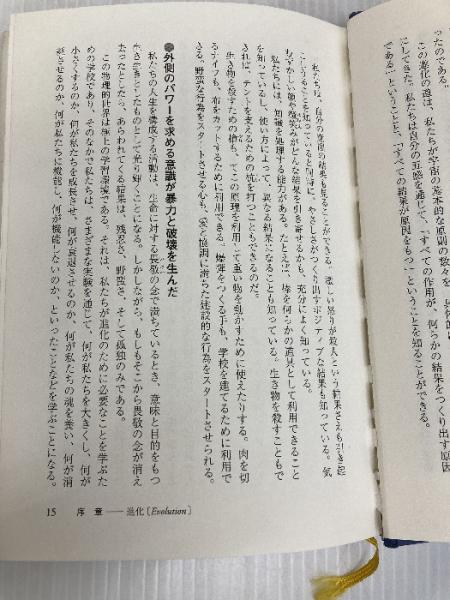 ったのである。
この進化の道は、私たちが宇宙の基本的な原則の数々を、具体的
にしてきた。私たちは自分の五感を通じて、「すべての作用が、何らかの結果をつくり出す原因
である」ということと、「すべての結果が原因をもつ」ということを知ることができる。
私たちは、自分の怒りの結果も見ることができる。激しい怒りが殺人という結果さえも引き起
こすことを知っていると同時に、やさしさがつくり出すポジティブな結果も知っている。気
むずかしい顔や微笑みがどんな結果を引き寄せるかも、充分によく知っている。
私たちには、知識を処理する能力がある。たとえば、棒を何らかの道具として利用できること
を知っているし、使い方によって、異なる結果になることも知っている。生き物を殺すこともで
きれば、テントを支えるための杭を打つこともできるのだ。
生き物を殺すための槍も、てこの原理を利用して重い物を動かすために使えたりする。肉を切
るナイフも、布をカットするために利用できる。爆弾をつくる手も、学校を建てるために利用で
きる。野蛮な行為をスタートさせる心も、愛と協調に満ちた建設的な行為をスタートさせられる。
●外側のパワーを求める意識が暴力と破壊を生んだ
私たちの人生を構成する活動は、生命に対する畏敬の念で満ちているとき、意味と目的をもつ
生き生きとしたものとして光り輝くことになる。しかしながら、もしもそこから畏敬の念が消え
去ったとしたら、あらわれてくる結果は、残忍さ、野蛮さ、そして孤独のみである。
この物理的世界は極上の学習環境である。それは、私たちが進化のために必要なことを学ぶた
めの学校であり、そのなかで私たちは、さまざまな実験を通じて、何が私たちを大きくし、何が
小さくするのか、何が私たちを成長させ、何が衰退させるのか、何が私たちの魂を養い、何が消
耗させるのか、何が私たちに機能し、何が機能しないのか、といったことなどを学ぶことになる。
15 序章──進化[Evolution]